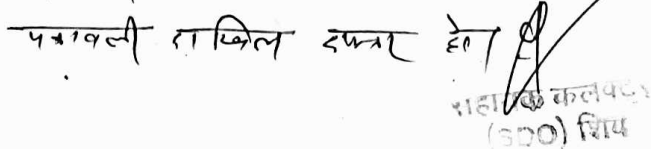 पत्रावली दाखिल दफ्तर हो।
सहायक कलक्टर
(SDO) शिव